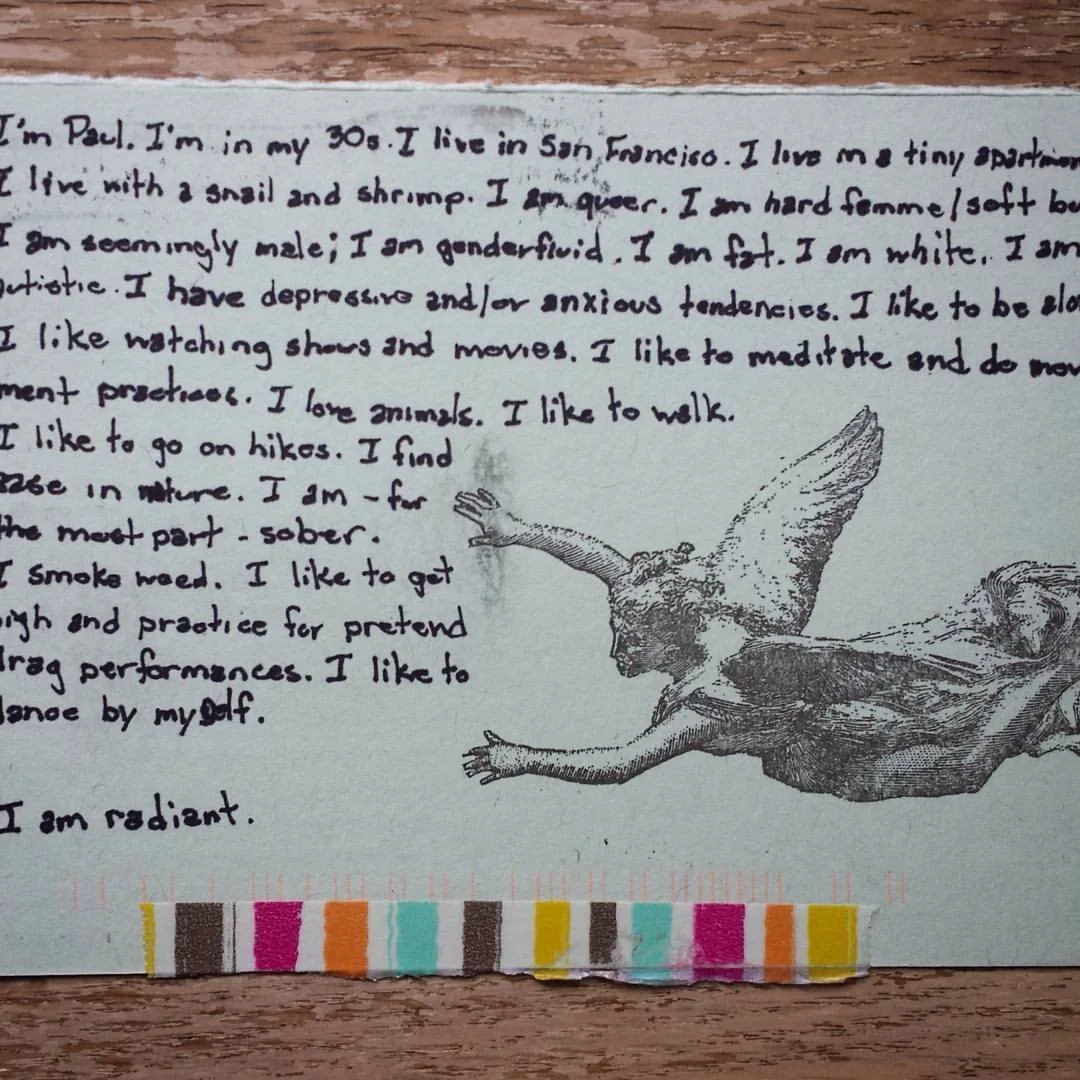 I'm Paul. I'm in my 30s. I live in San Francisco. I live in a tiny apartmen
I live with a snail and shrimp. I am queer. I am hard femme/soft bu
I am seemingly male; I am genderfluid. I am fat. I am white. I am
autistic. I have depressive and/or anxious tendencies. I like to be alo
I like watching shows and movies. I like to meditate and do mov
ment practices. I love animals. I like to walk.
I like to go on hikes. I find
ease in nature. I am - for
the most part - sober.
I smoke weed. I like to get
high and practice for pretend
drag performances. I like to
dance by myself.
I am radiant.